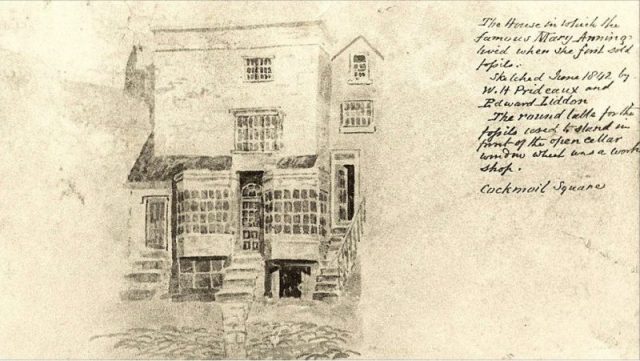 The House in which the
famous Mary Anning
lived when she first sold
fossils.
Sketched June 1842, by
W. H. Prideaux and
Edward Liddon
The round table for the
fossils used to stand in
front of the open cellar
window which was a work
shop.
Cockmoil Square